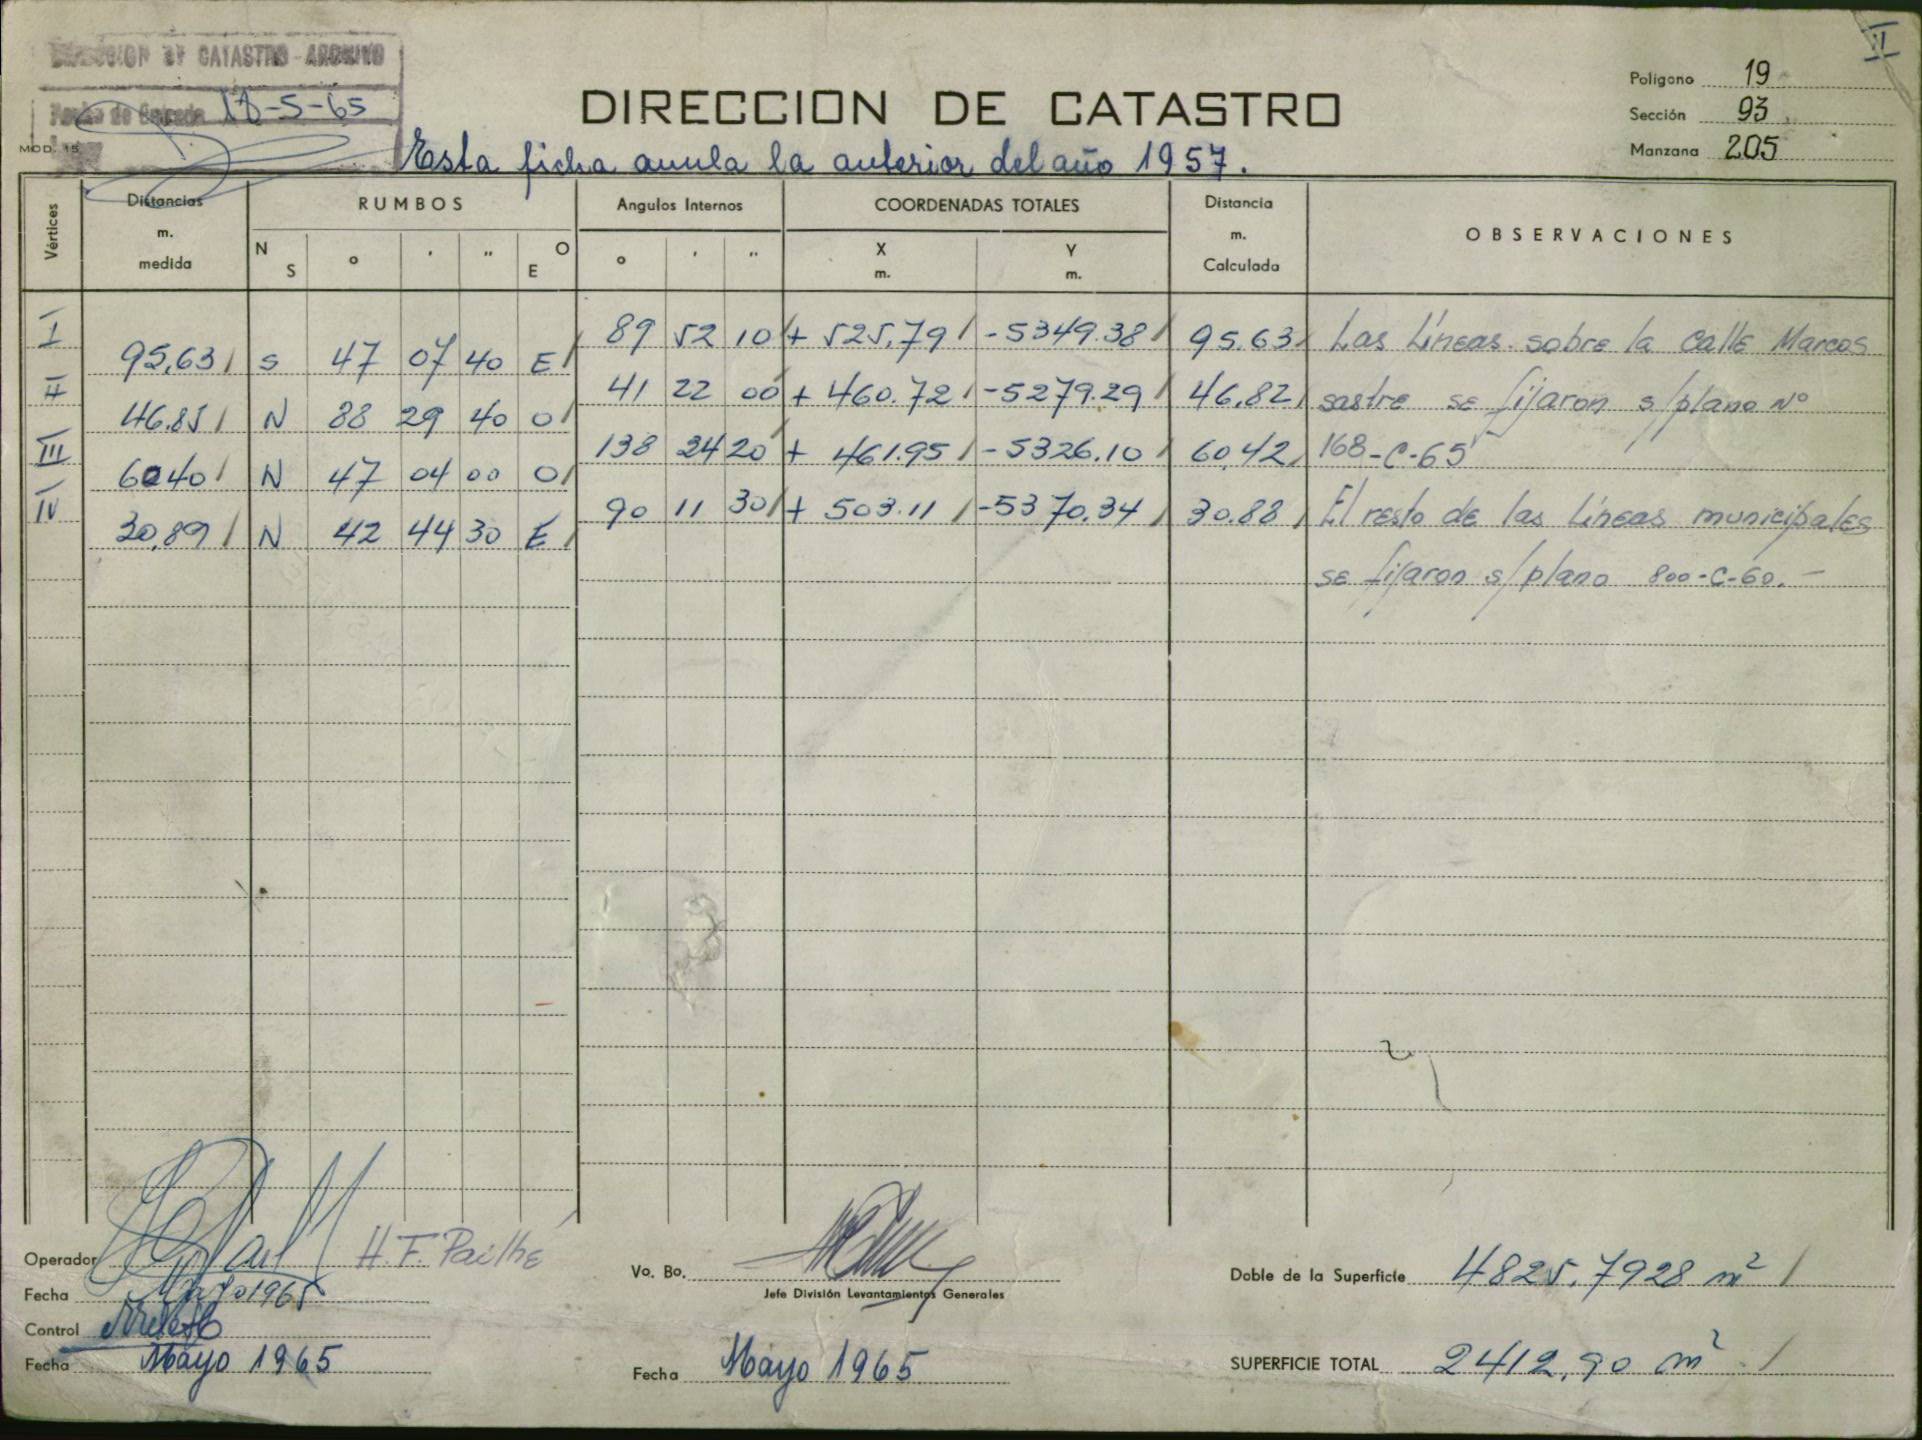 DIRECCION DE CATASTRO - ARCHIVO
Fecha de Entrada 18-5-65
MOD. 15
II
DIRECCION DE CATASTRO
Polígono 19
Sección 93
Manzana 205
Esta ficha anula la anterior del año 1957.
Vértices Distancias m. medida RUMBOS Angulos Internos COORDENADAS TOTALES Distancia m. Calculada OBSERVACIONES
N S ° ' " E O ° ' " X m. Y m.
I 89 52 10 + 525,79 -5349.38 95.63 Las Líneas sobre la calle Marcos
95,63 S 47 07 40 E
II 41 22 00 + 460.72 -5279.29 46.82 sastre se fijaron s/plano Nº
46.85 N 88 29 40 O
III 138 34 20 + 461.95 -5326.10 60.42 168-C-65
60.40 N 47 04 00 O
IV 90 11 30 + 503.11 -5370.34 30.88 El resto de las Líneas municipales
30,89 N 42 44 30 E
se fijaron s/plano 800-C-60.-
Operador H.F. Pailhé
Fecha Mayo 1965
Control
Fecha Mayo 1965
Vo. Bo.
Jefe División Levantamientos Generales
Fecha Mayo 1965
Doble de la Superficie 4825,7928 m²
SUPERFICIE TOTAL 2412,90 m².